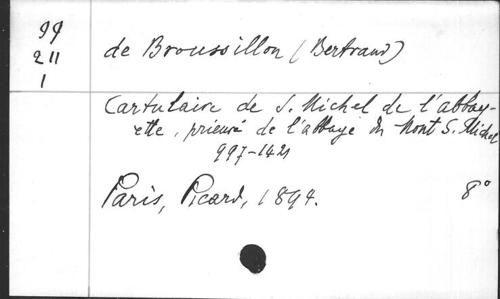 99
211
1
de Broussillon (Bertrand)
Cartulaire de S. Michel de l'abbay-
ette, prieuré de l'abbaye du Mont S. Michel
997-1421
Paris, Picard, 1894. 8°